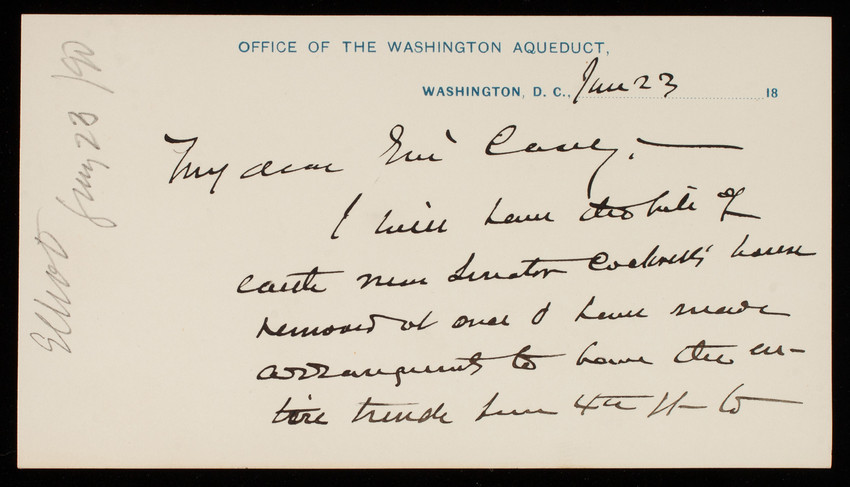 OFFICE OF THE WASHINGTON AQUEDUCT,
WASHINGTON, D. C., Jan 23 18
My dear Gen'l Casey:—
I will have the pile of
earth near Senator Cockrell's house
removed at once & have made
arrangements to have the en-
tire trench from 4th St to
Elliot Jany 23/90